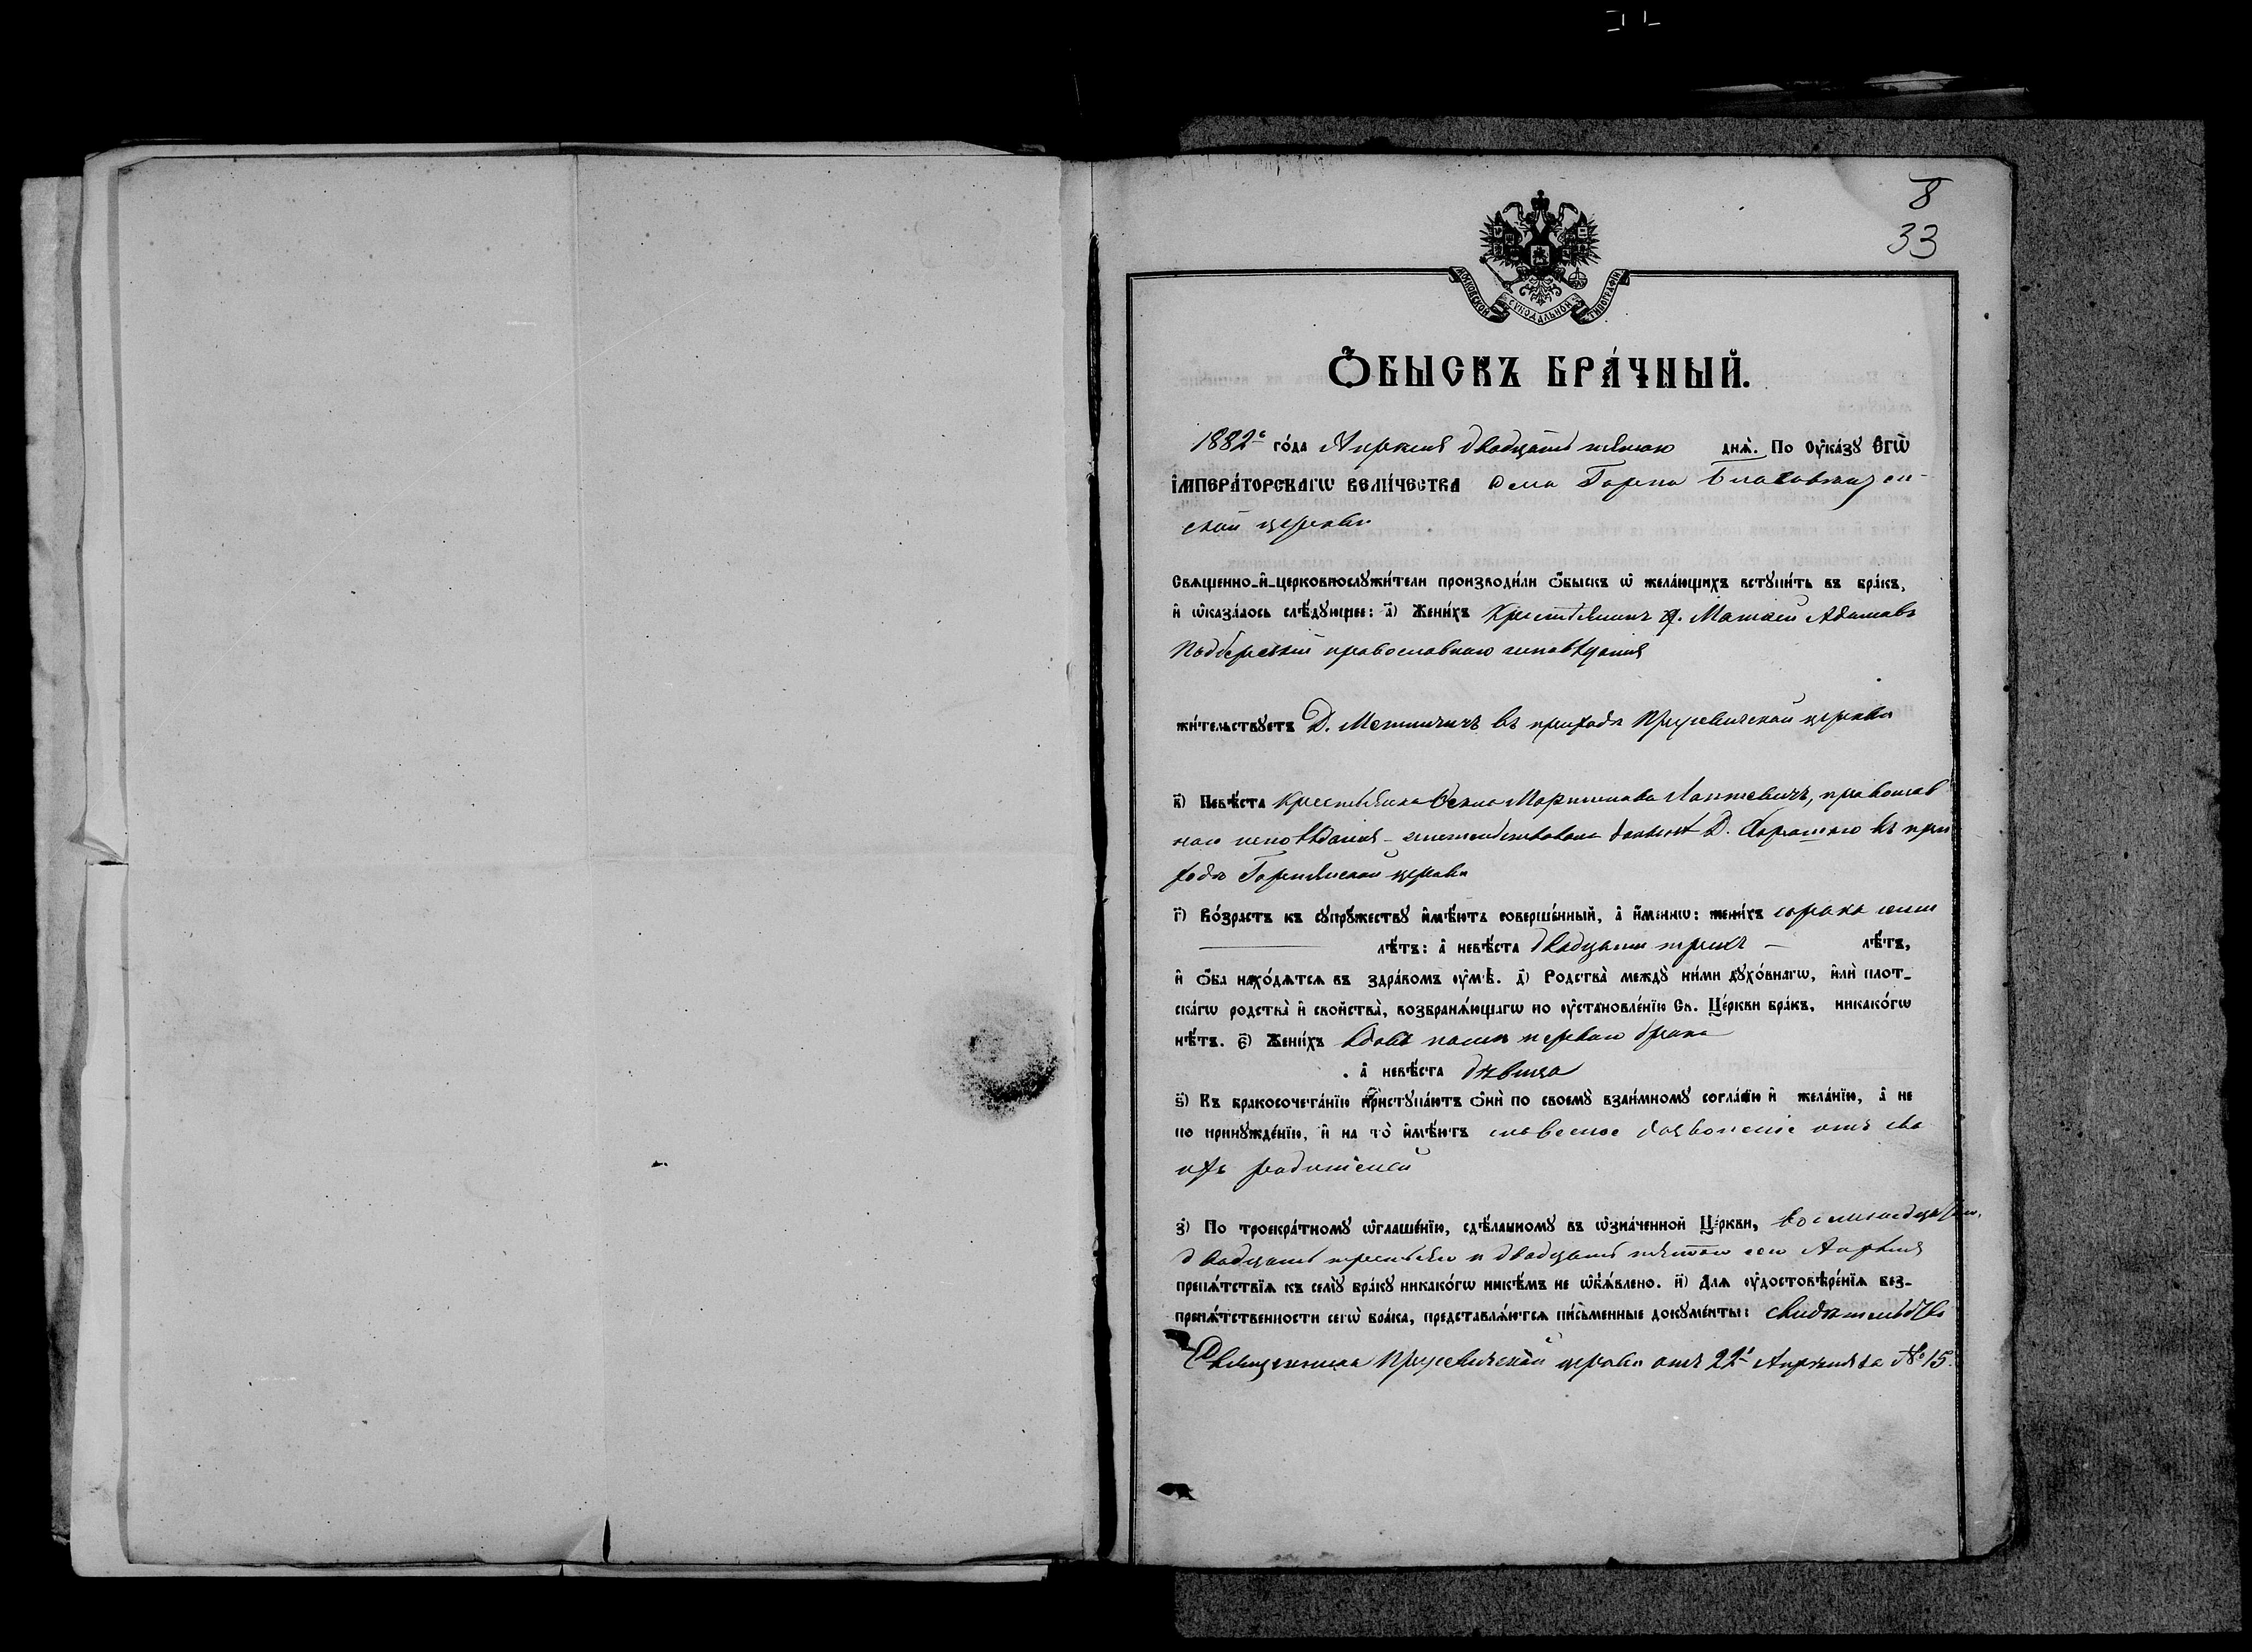 8
33
МОСКОВСКОЙ СѴНОДАЛЬНОЙ ТИПОГРАФІИ
Ѻ҆БЫСКЪ БРА́ЧНЫЙ.
1882го го́да Апрѣля двадцать пятаго днѧ̀. По ᲂу҆ка́зꙋ є҆гѡ̀
І҆МПЕРА́ТОРСКАГѠ ВЕЛИ́ЧЕСТВА села Горна Благовѣщен-
ской церкви
Свѧщенно-и҆-церковнослꙋжи́тели производи́ли ѻ҆́быскъ ѡ҆ жела́ющихъ встꙋпи́ть въ бра́къ,
и҆ ѡ҆каза́лось слѣ́дꙋющее: а҃) Жени́хъ крестьянинъ Матѳей Адамовъ
Подберскій православнаго исповѣданія
жи́тельствꙋетъ Д. въ приходѣ Прусевичской церкви
в҃) Невѣ́ста крестьянка Мартинова Лаптевичъ, православ
наго исповѣданія - жительствовала Д. въ при
ходѣ Горнянской церкви
г҃) Во́зрастъ къ сꙋпрꙋ́жествꙋ и҆мѣ́ютъ соверше́нный, а҆ и҆́меннѡ: жени́хъ сорока семи
лѣ́тъ: а҆ невѣ́ста двадцати трехъ - лѣ́тъ,
и҆ ѻ҆́ба нахо́дѧтсѧ въ здра́вомъ ᲂу҆мѣ̀. д҃) Родства̀ междꙋ̀ ни́ми дꙋхо́внагѡ, и҆лѝ плот-
ска́гѡ родства̀ и҆ свойства̀, возбранѧ́ющагѡ по ᲂу҆становле́нїю Св. Це́ркви бра́къ, никако́гѡ
нѣ́тъ. є҃) Жени́хъ вдовъ послѣ перваго брака
а҆ невѣ́ста дѣвица
ѕ҃) Къ бракосочета́нїю пристꙋпа́ютъ ѻ҆нѝ по своемꙋ̀ взаи́мномꙋ согла́сїю и҆ жела́нїю, а҆ не
по принꙋжде́нїю, и҆ на то̀ и҆мѣ́ютъ словесное дозволеніе отъ сво
ихъ родителей
з҃) По троекра́тномꙋ ѡ҆глаше́нїю, сдѣ́ланномꙋ въ ѡ҆зна́ченной Це́ркви, восемнадцатаго,
двадцать третьяго и двадцать пятаго сего Апрѣля
препѧ́тствїѧ къ семꙋ̀ бра́кꙋ никако́гѡ никѣ́мъ не ѡ҆б̾ѧ́влено. и҃) Длѧ ᲂу҆достовѣре́нїѧ без-
препѧ́тственности сегѡ̀ бра́ка, представлѧ́ютсѧ пи́сьменные докꙋме́нты: свидѣтельство
Священника Прусевичской церкви отъ 22го Апрѣля за № 15.